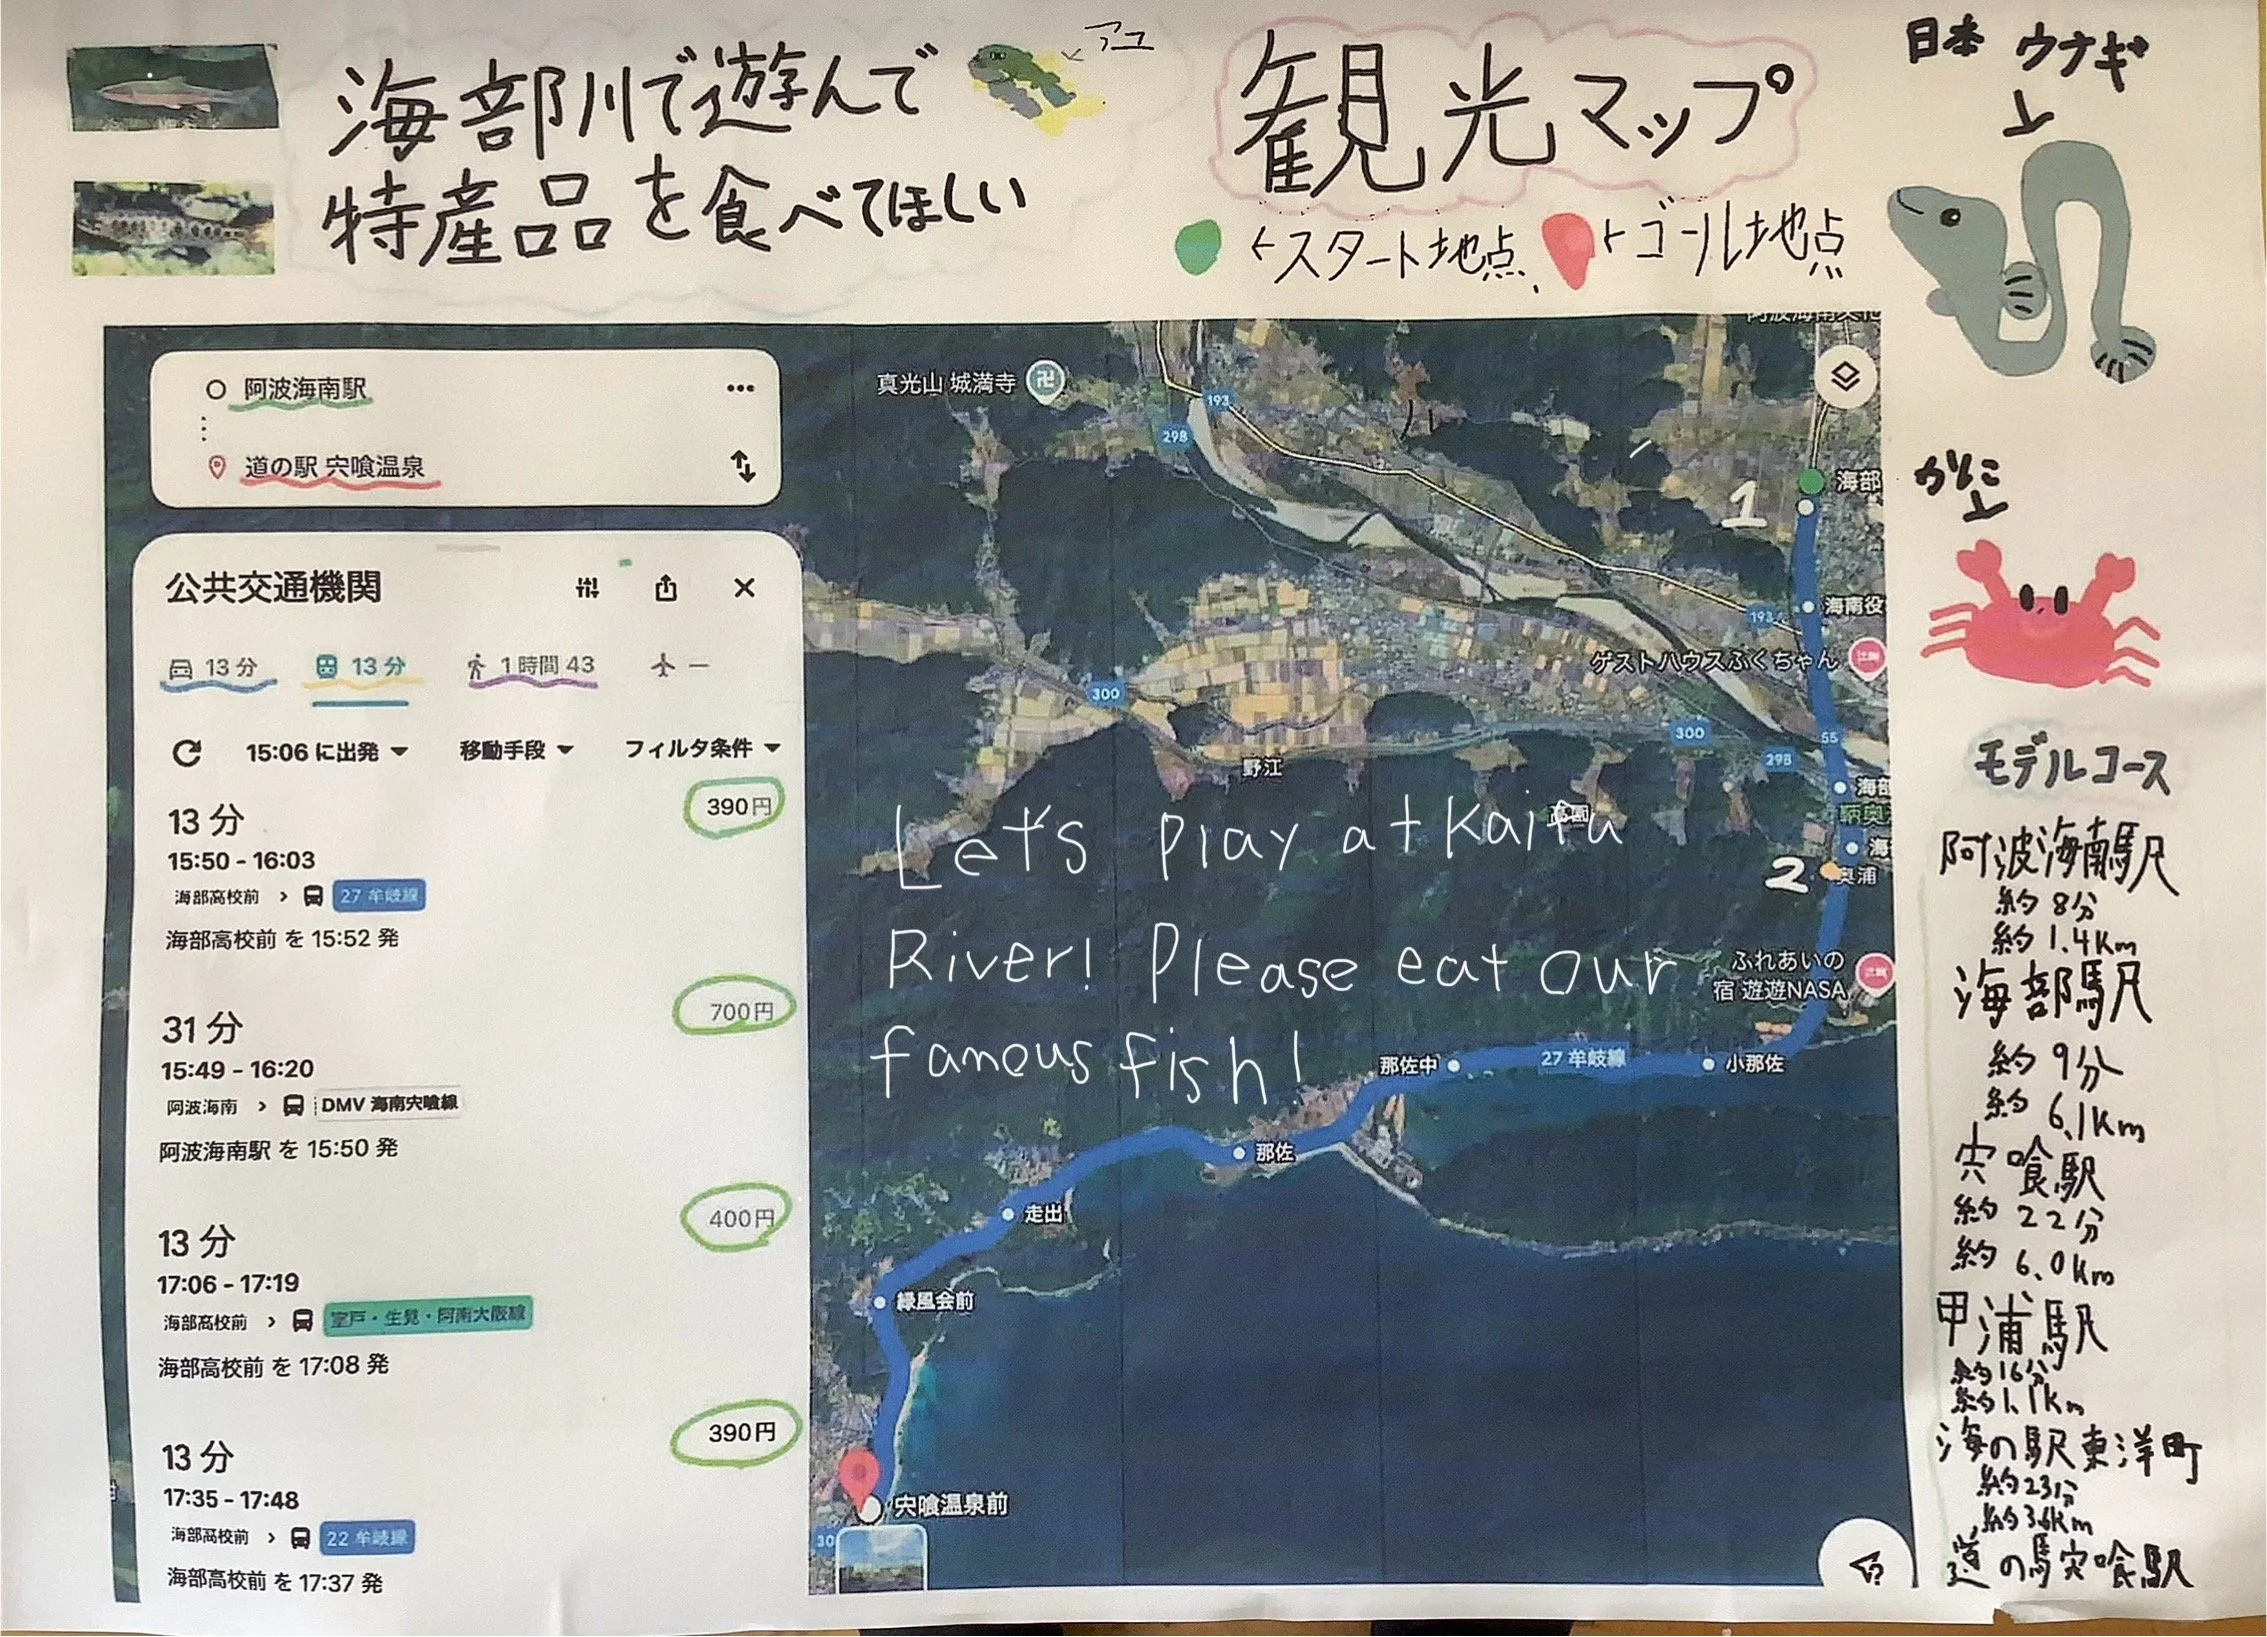 海部川で遊んで
特産品を食べてほしい
アユ
観光マップ
←スタート地点、
←ゴール地点
日本 ウナギ
かに
阿波海南駅
道の駅 宍喰温泉
公共交通機関
13 分
13 分
1 時間 43
15:06 に出発
移動手段
フィルタ条件
13 分
390円
15:50 - 16:03
海部高校前 > 27 牟岐線
海部高校前 を 15:52 発
31 分
700円
15:49 - 16:20
阿波海南 > DMV 海南宍喰線
阿波海南駅 を 15:50 発
13 分
400円
17:06 - 17:19
海部高校前 > 室戸・生見・阿南大阪線
海部高校前 を 17:08 発
13 分
390円
17:35 - 17:48
海部高校前 > 22 牟岐線
海部高校前 を 17:37 発
真光山 城満寺
193
298
1
海部
海南役
193
ゲストハウスふくちゃん
300
300
55
298
野江
海部
鞆奥
海
2
奥浦
Let's play at Kaifu
River! Please eat our
famous fish!
ふれあいの
宿 遊遊NASA
那佐中
27 牟岐線
小那佐
那佐
走出
緑風会前
宍喰温泉前
30
モデルコース
阿波海南駅
約 8分
約 1.4Km
海部駅
約 9分
約 6.1Km
宍喰駅
約 22分
約 6.0Km
甲浦駅
約16分
約1.1Km
海の駅東洋町
約23分
約3.6Km
道の駅宍喰駅